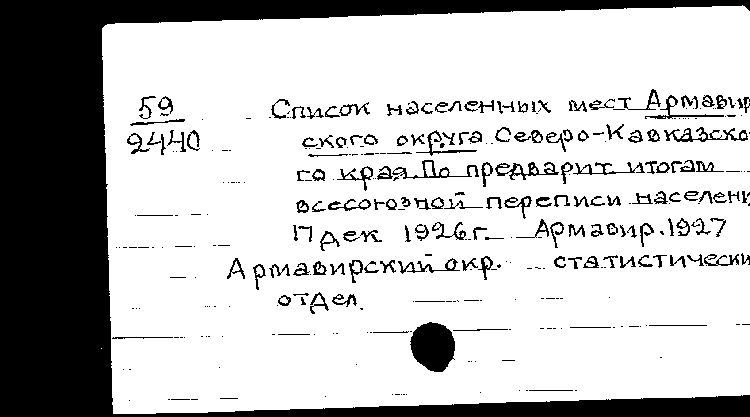 59
2440
Список населенных мест Армавир
ского округа Северо-Кавказско
го края. По предварит итогам
всесоюзной переписи населени
17 дек 1926 г. Армавир. 1927
Армавирский окр. статистически
отдел.